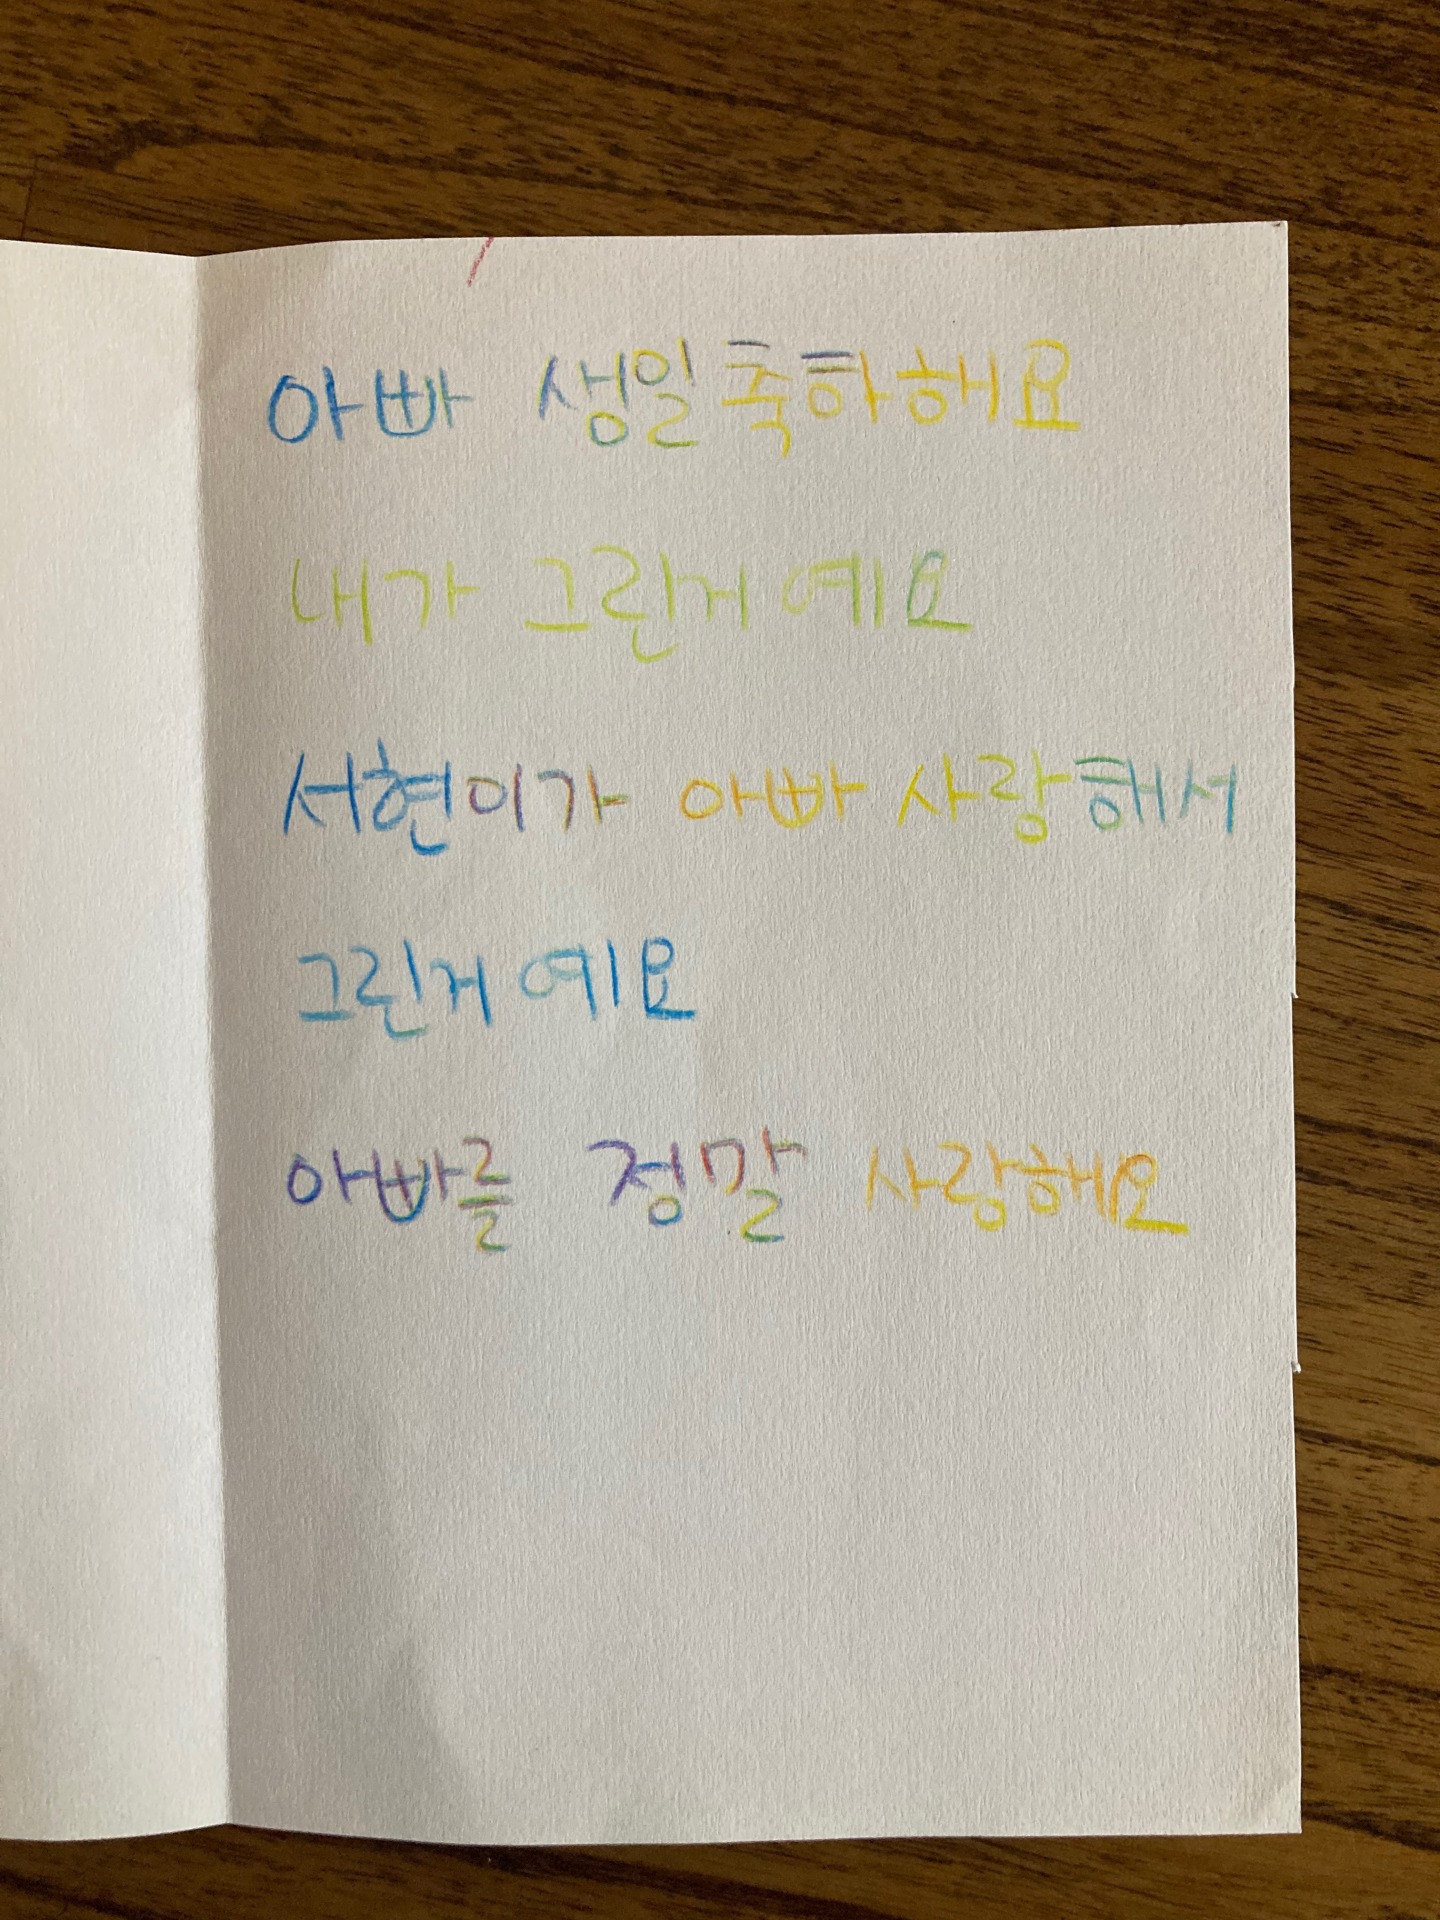 아빠 생일 축하해요
내가 그린거 예요
서현이가 아빠 사랑해서
그린거 예요
아빠를 정말 사랑해요